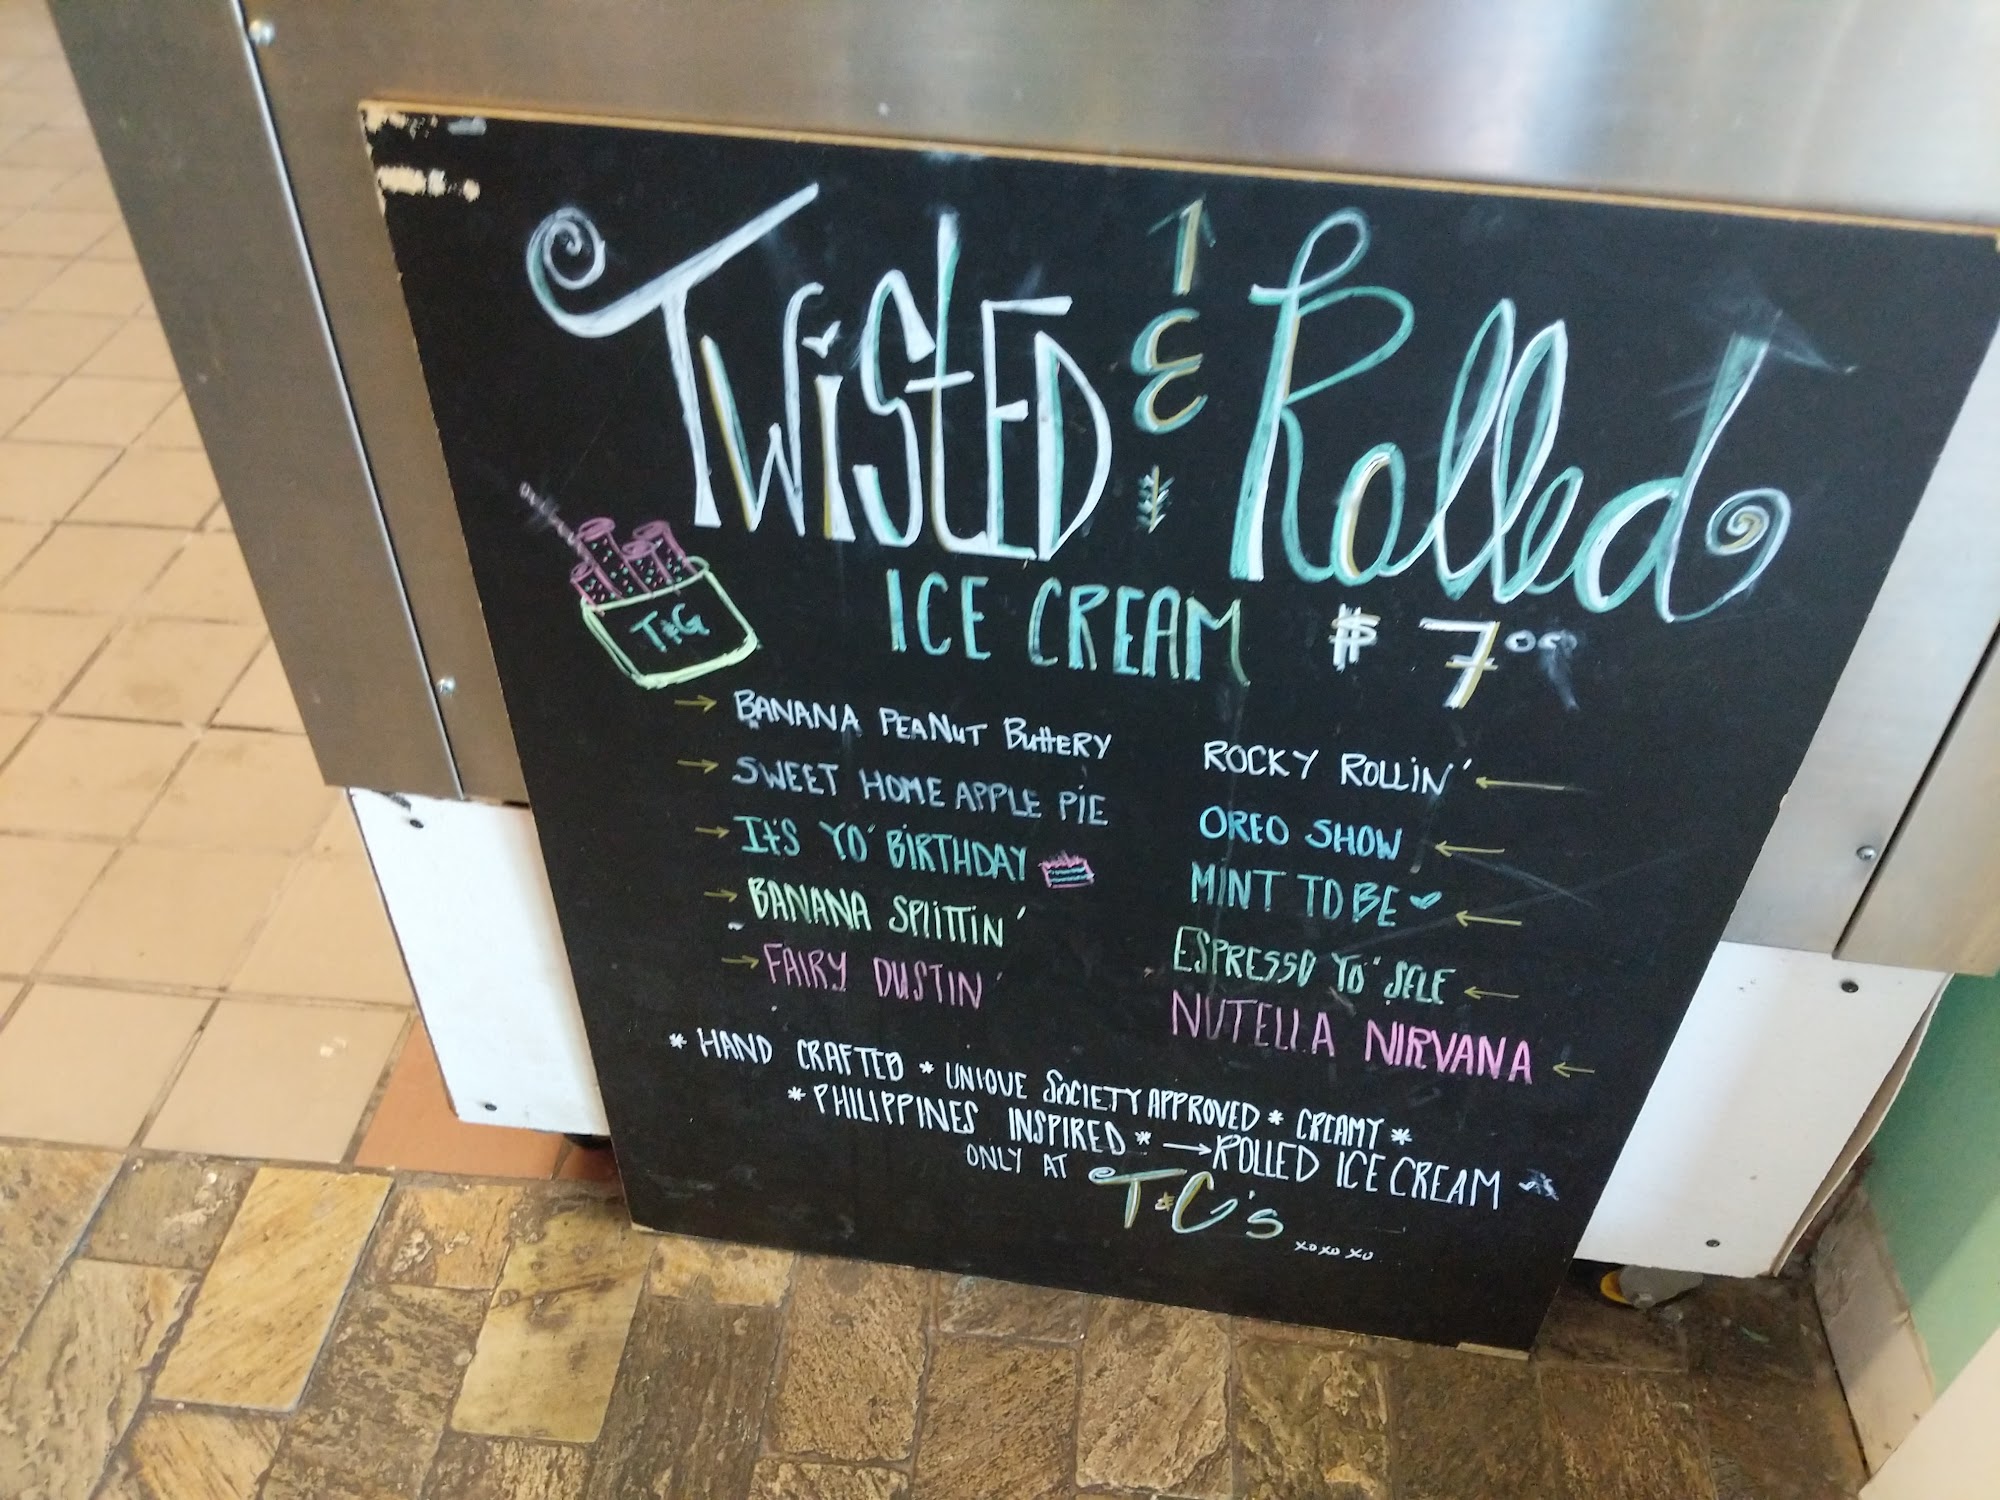 Twisted & Rolled
ICE CREAM $7.00
T&G
BANANA PEANUT BUTTERY
SWEET HOME APPLE PIE
IT'S YO' BIRTHDAY
BANANA SPLITTIN'
FAIRY DUSTIN'
ROCKY ROLLIN'
OREO SHOW
MINT TO BE
ESPRESSO YO' SELF
NUTELLA NIRVANA
* HAND CRAFTED * UNIQUE SOCIETY APPROVED * CREAMY *
* PHILIPPINES INSPIRED * → ROLLED ICE CREAM
ONLY AT T&C's
xo xo xo